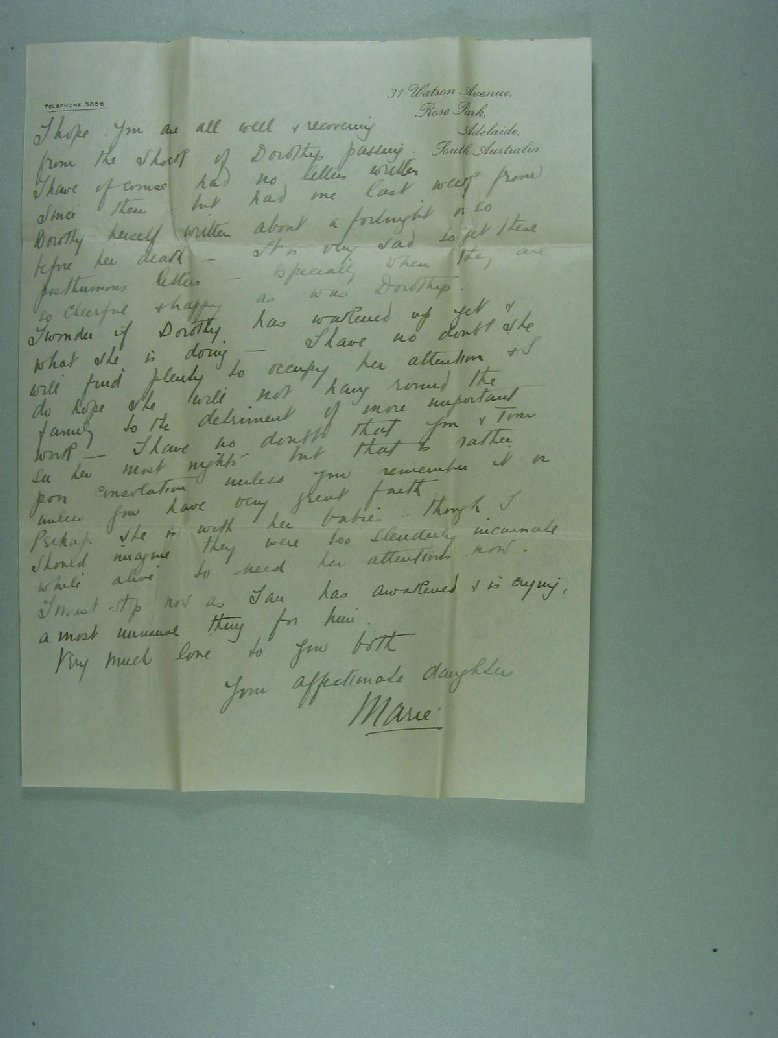 TELEPHONE
31 Watson Avenue,
Rose Park,
Adelaide,
South Australia
I hope you are all well & recovering
from the shock of Dorothy's passing.
I have of course had no letters written
since then but had one last week from
Dorothy herself written about a fortnight or so
before her death – It is very sad to get these
posthumous letters – specially when they are
so cheerful & happy as was Dorothy's.
I wonder if Dorothy has wakened up yet &
what she is doing – I have no doubt she
will find plenty to occupy her attention & I
do hope she will not hang round the
family to the detriment of more important
work – I have no doubt that you & Tom
see her most nights but that is rather
poor consolation unless you remember it or
unless you have very great faith
Perhaps she is with her babie – though I
should imagine they were too slenderly incarnate
while alive to need her attentions now.
I must stop now as Ian has awakened & is crying,
a most unusual thing for him.
Very much love to you both
Your affectionate daughter
Marie